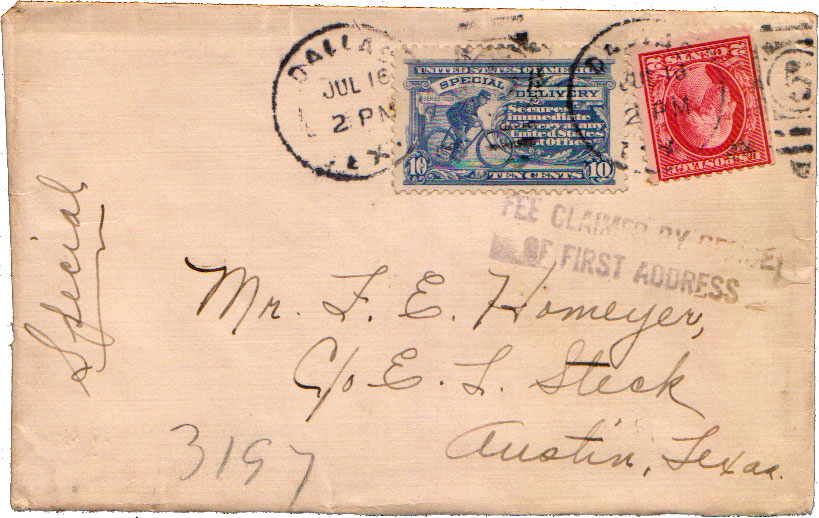 DALLAS
JUL 16
2 PM
TEX.
UNITED STATES OF AMERICA
SPECIAL
DELIVERY
Secures
immediate
delivery at any
United States
Post Office
10 TEN CENTS 10
DALLAS
JUL 16
2 PM
2 CENTS 2
U.S. POSTAGE
FEE CLAIMED BY OFFICE
OF FIRST ADDRESS
Special
Mr. F. E. Homeyer,
C/o E. L. Steck
Austin, Texas.
3197